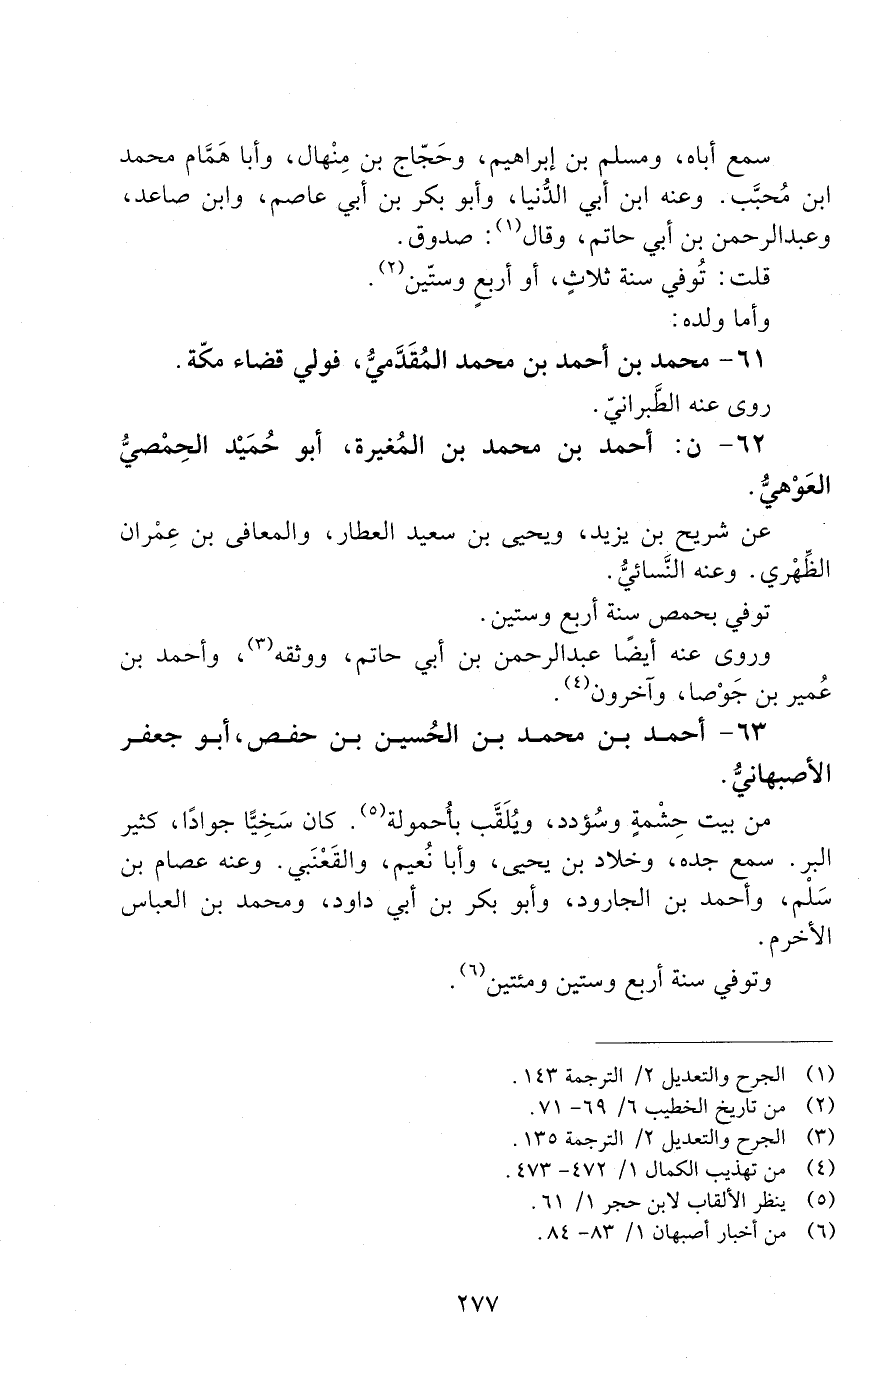 سمع أباه، ومسلم بن إبراهيم، وحَجّاج بن مِنْهال، وأبا هَمَّام محمد
ابن مُحبَّب. وعنه ابن أبي الدُّنيا، وأبو بكر بن أبي عاصم، وابن صاعد،
وعبدالرحمن بن أبي حاتم، وقال(١): صدوق.
قلت: تُوفي سنة ثلاثٍ، أو أربعٍ وستّين(٢).
وأما ولده:
٦١- محمد بن أحمد بن محمد المُقَدَّميُّ، فولي قضاء مكّة.
روى عنه الطَّبرانيّ.
٦٢- ن: أحمد بن محمد بن المُغيرة، أبو حُمَيْد الحِمْصيُّ
العَوْهيُّ.
عن شريح بن يزيد، ويحيى بن سعيد العطار، والمعافى بن عِمْران
الظِّهْري. وعنه النَّسائيُّ.
توفي بحمص سنة أربع وستين.
وروى عنه أيضًا عبدالرحمن بن أبي حاتم، ووثقه(٣)، وأحمد بن
عُمير بن جَوْصا، وآخرون(٤).
٦٣- أحمد بن محمد بن الحُسين بن حفص، أبو جعفر
الأصبهانيُّ.
من بيت حِشْمةٍ وسُؤدد، ويُلَقَّب بأُحمولة(٥). كان سَخِيًّا جوادًا، كثير
البر. سمع جده، وخلاد بن يحيى، وأبا نُعيم، والقَعْنَبي. وعنه عصام بن
سَلْم، وأحمد بن الجارود، وأبو بكر بن أبي داود، ومحمد بن العباس
الأخرم.
وتوفي سنة أربع وستين ومئتين(٦).
(١) الجرح والتعديل ٢/ الترجمة ١٤٣.
(٢) من تاريخ الخطيب ٦/ ٦٩- ٧١.
(٣) الجرح والتعديل ٢/ الترجمة ١٣٥.
(٤) من تهذيب الكمال ١/ ٤٧٢- ٤٧٣.
(٥) ينظر الألقاب لابن حجر ١/ ٦١.
(٦) من أخبار أصبهان ١/ ٨٣- ٨٤.
٢٧٧